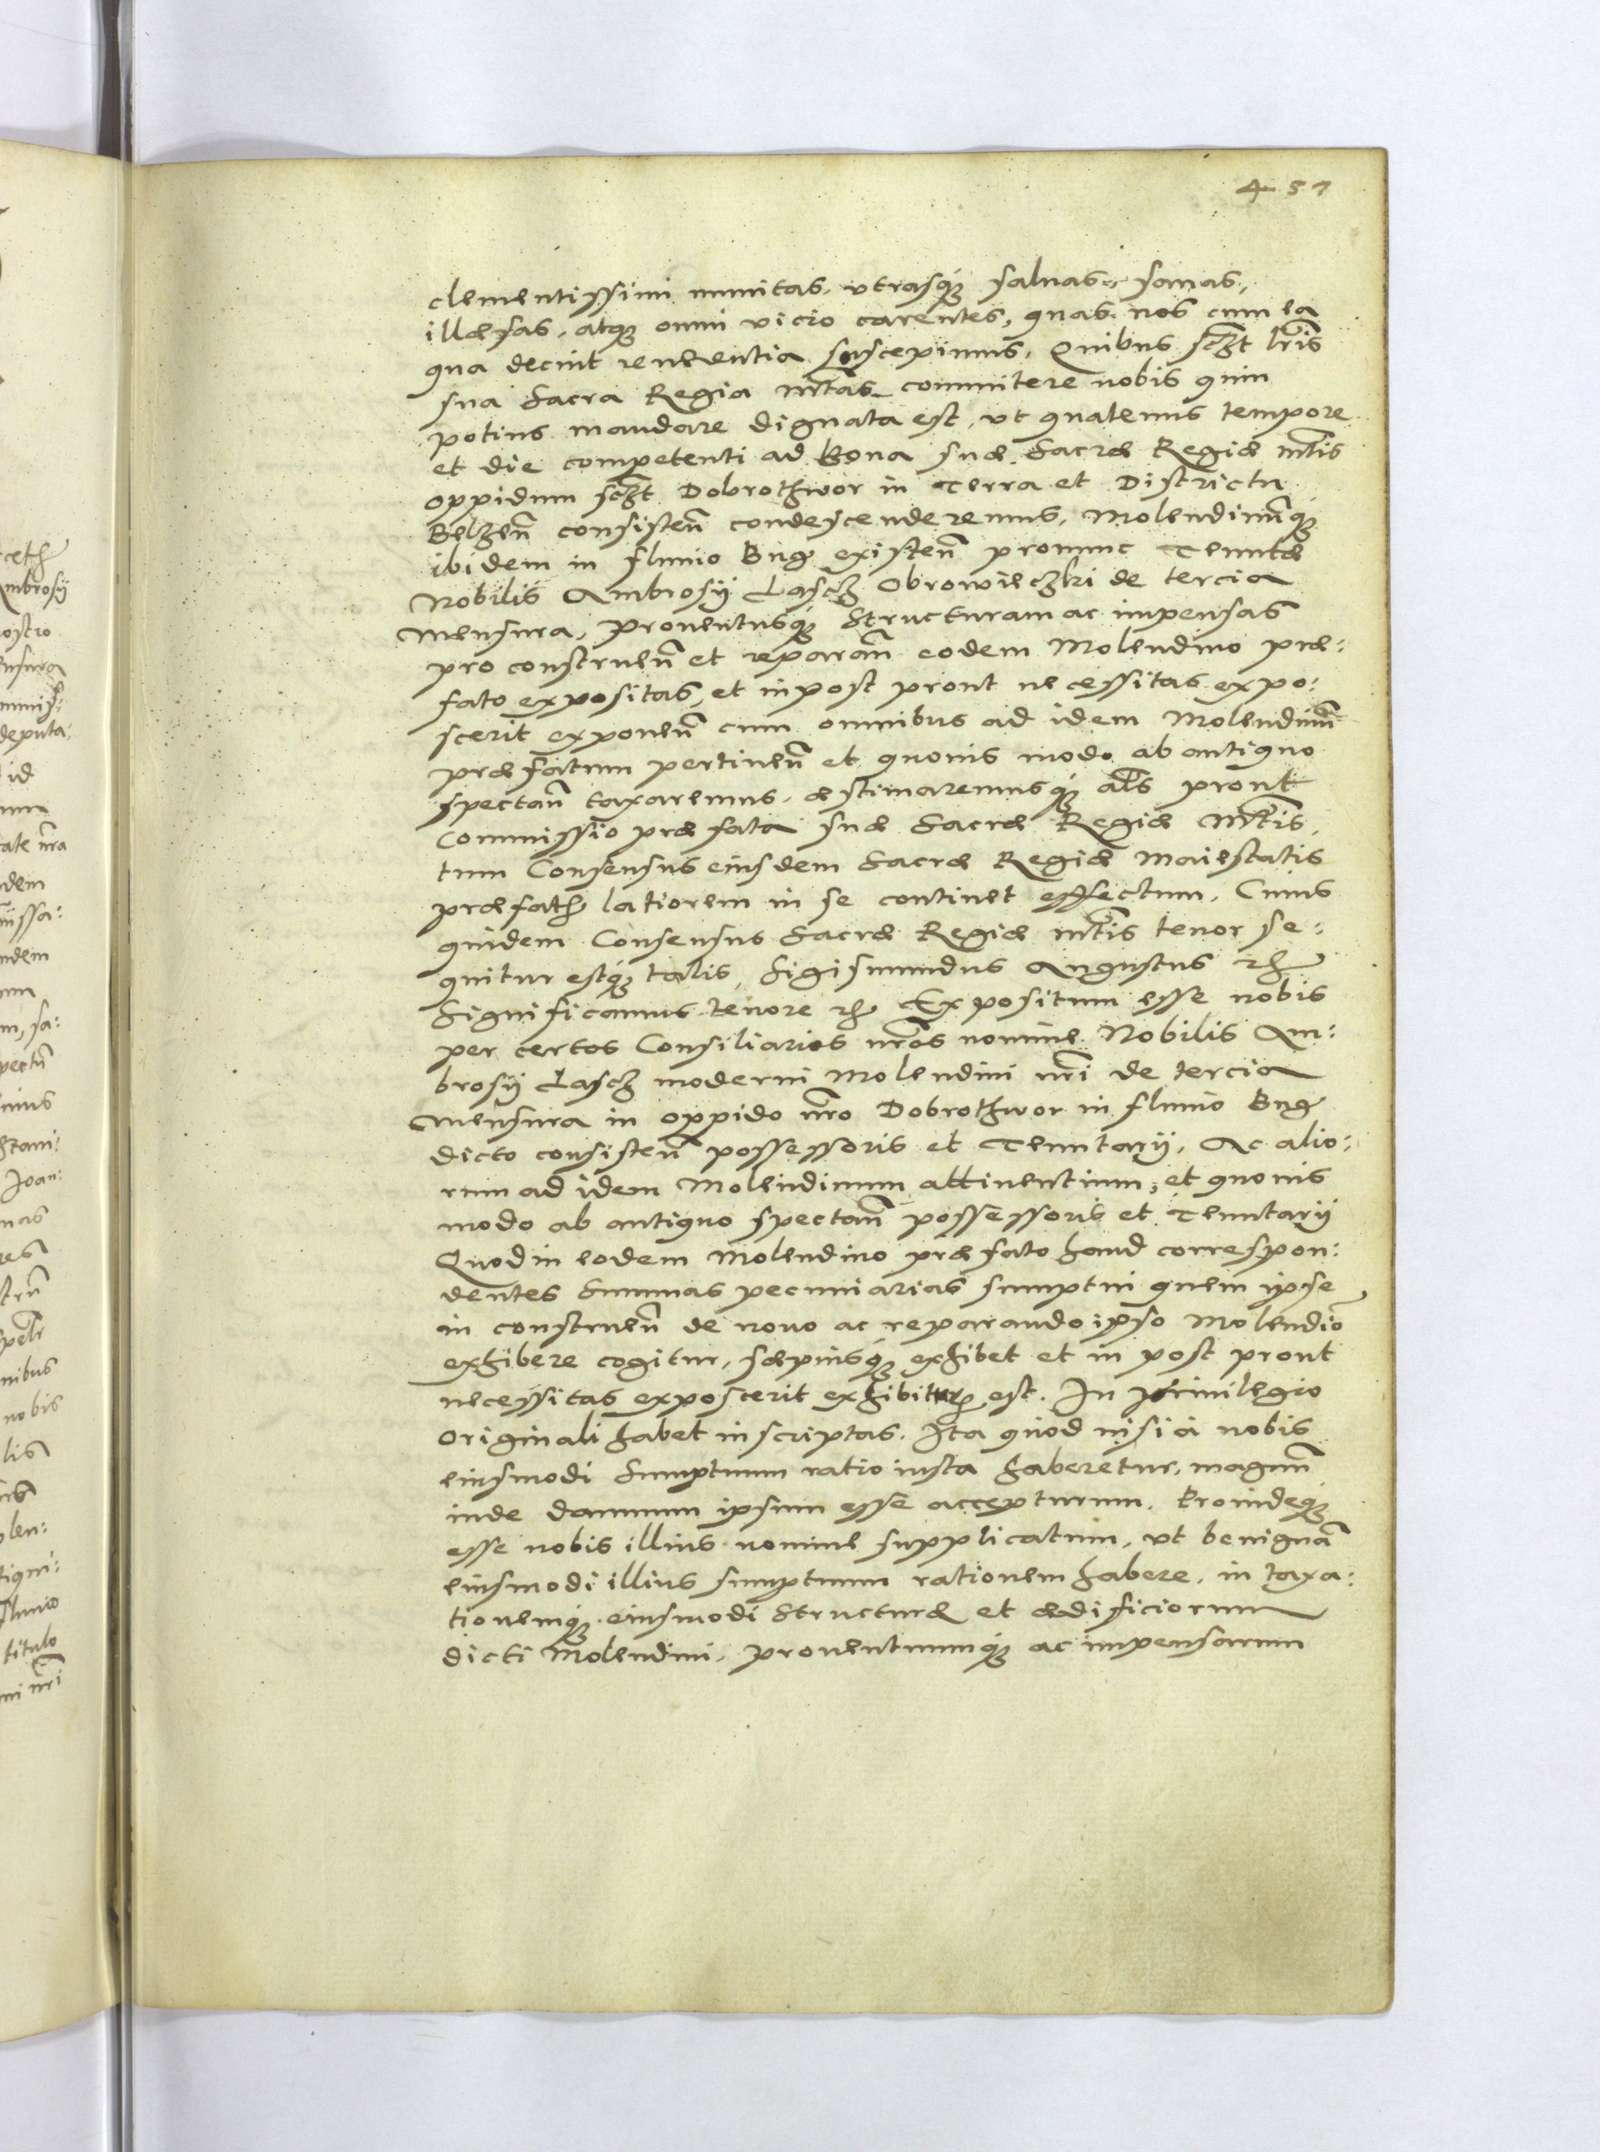 457
clementissimi munitas, vtrasq́ꝫ saluas, sanas,
illæsas, atqꝫ omni vicio carentes, quas nos cum ea
qua decuit reuerentia suscepimus, Quibus sczt lris
sua Sacra Regia Mtas committere nobis quin
potius mandare dignata est, vt quatenus tempore
et die competenti ad Bona suæ Sacræ Regiæ Mtis
oppidum sczt Dobrothwor in Terra et Districtu
Belzen̄ consisten̄ condescenderemus, Molendinum̄qꝫ
ibidem in fluuio Bug existen̄ pronunc Tenutæ
Nobilis Ambrosÿ Lascz Obrowieczki de tercia
Mensura, prouentusq́ꝫ Structuram ac impensas
pro construen̄ et reparan̄ eodem Molendino præ:
fato expositas, et inpost prout necessitas expo:
scerit exponen̄ cum omnibus ad idem Molendinum̄
præfatum pertinen̄ et quouis modo ab antiquo
spectan̄ taxaremus, æstimaremusq́ꝫ als prout
Commissio præfata suæ Sacræ Regiæ Mtis,
tum Consensus eiusdem Sacræ Regiæ Maiestatis
præfatꝫ latiorem in se continet effectum, Cuius
quidem Consensus Sacræ Regiæ Mtis tenor se:
quitur estq́ꝫ talis, Sigismundus Augustus ꝛc
Significamus tenore ꝛc Expositum esse nobis
per certos Consiliarios nros nomine Nobilis Am:
brosÿ Lascz moderni Molendini nri de tercia
Mensura in oppido nro Dobrothwor in fluuio Bug
dicto consisten̄ possessoris et Tenutarÿ, Ac alio:
rum ad idem Molendinum attinentium, et quouis
modo ab antiquo spectan̄ possessoris et Tenutarÿ
Quod in eodem Molendino præfato haud correspon:
dentes Summas pecuniarias sumptui quem ipse
in construen̄ de nouo ac reparando ipso Molendio̅
exhibere cogitur, sæpiusq́ꝫ exhibet et in post prout
necessitas exposcerit exhibiturꝫ est. In priuilegio
Originali habet inscriptas. Ita quod nisi à nobis
eiusmodi Sumptuum ratio iusta haberetur, magnum̄
inde damnum ipsum esse accepturum. Proindeqꝫ
esse nobis illius nomine supplicatum, vt benignam̄
eiusmodi illius sumptuum rationem habere, in taxa:
tionemq́ꝫ eiusmodi Structuræ et ædificiorum
dicti Molendini, prouentuumq́ꝫ ac impensarum